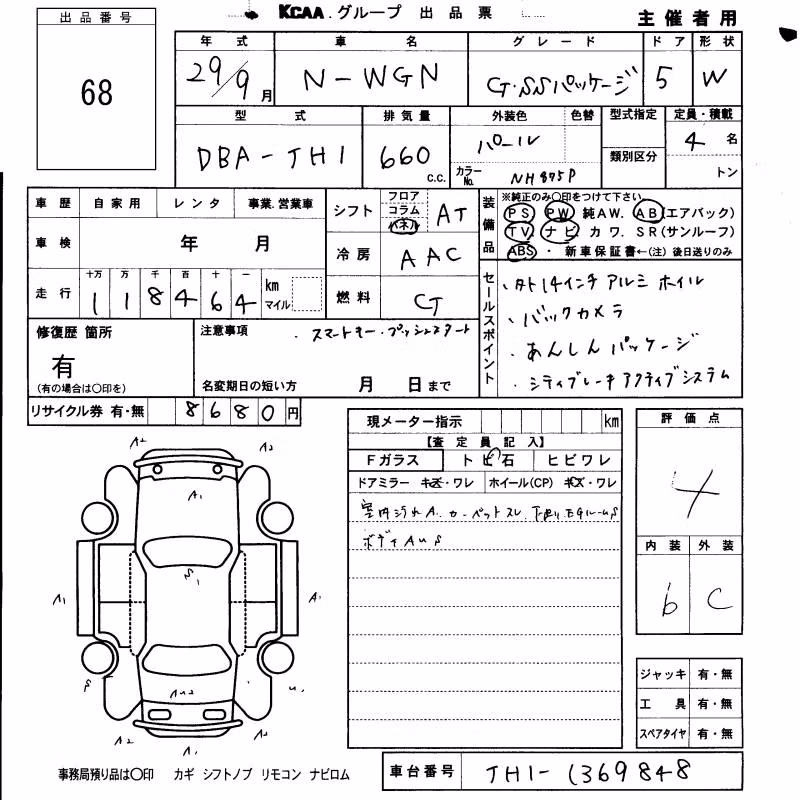 KCAA.グループ 出品票
主催者用
出品番号
68
年式 車名 グレード ドア 形状
29/9月 N-WGN G・SSパッケージ 5 W
型式 排気量 外装色 色替 型式指定 定員・積載
DBA-JH1 660 c.c. パール 類別区分 4名
カラーNo. NH875P トン
車歴 自家用 レンタ 事業.営業車
車検 年 月
走行 十万 万 千 百 十 一 km マイル
118464
シフト フロア コラム パネル AT
冷房 AAC
燃料 G
装備品
※純正のみ○印をつけて下さい
PS PW 純AW. AB(エアバック)
TV ナビ カワ. SR(サンルーフ)
ABS ・ 新車保証書←(注) 後日送りのみ
セールスポイント
・社外14インチ アルミホイル
・バックカメラ
・あんしんパッケージ
・シティブレーキアクティブシステム
修復歴 箇所
有
(有の場合は○印を)
注意事項
・スマートキー・プッシュスタート
名変期日の短い方 月 日まで
リサイクル券 有・無 8680円
現メーター指示 km
【査定員記入】
Fガラス トビ石 ヒビワレ
ドアミラー キズ・ワレ ホイール(CP) キズ・ワレ
室内汚れA. カーペットスレ.
ボディAUS
評価点
4
内装 外装
b C
A2 A2
A1
S1
A1 A1
S U1
AU2
A2 A2
A1
ジャッキ 有・無
工具 有・無
スペアタイヤ 有・無
事務局預り品は○印 カギ シフトノブ リモコン ナビロム
車台番号 JH1-1369848